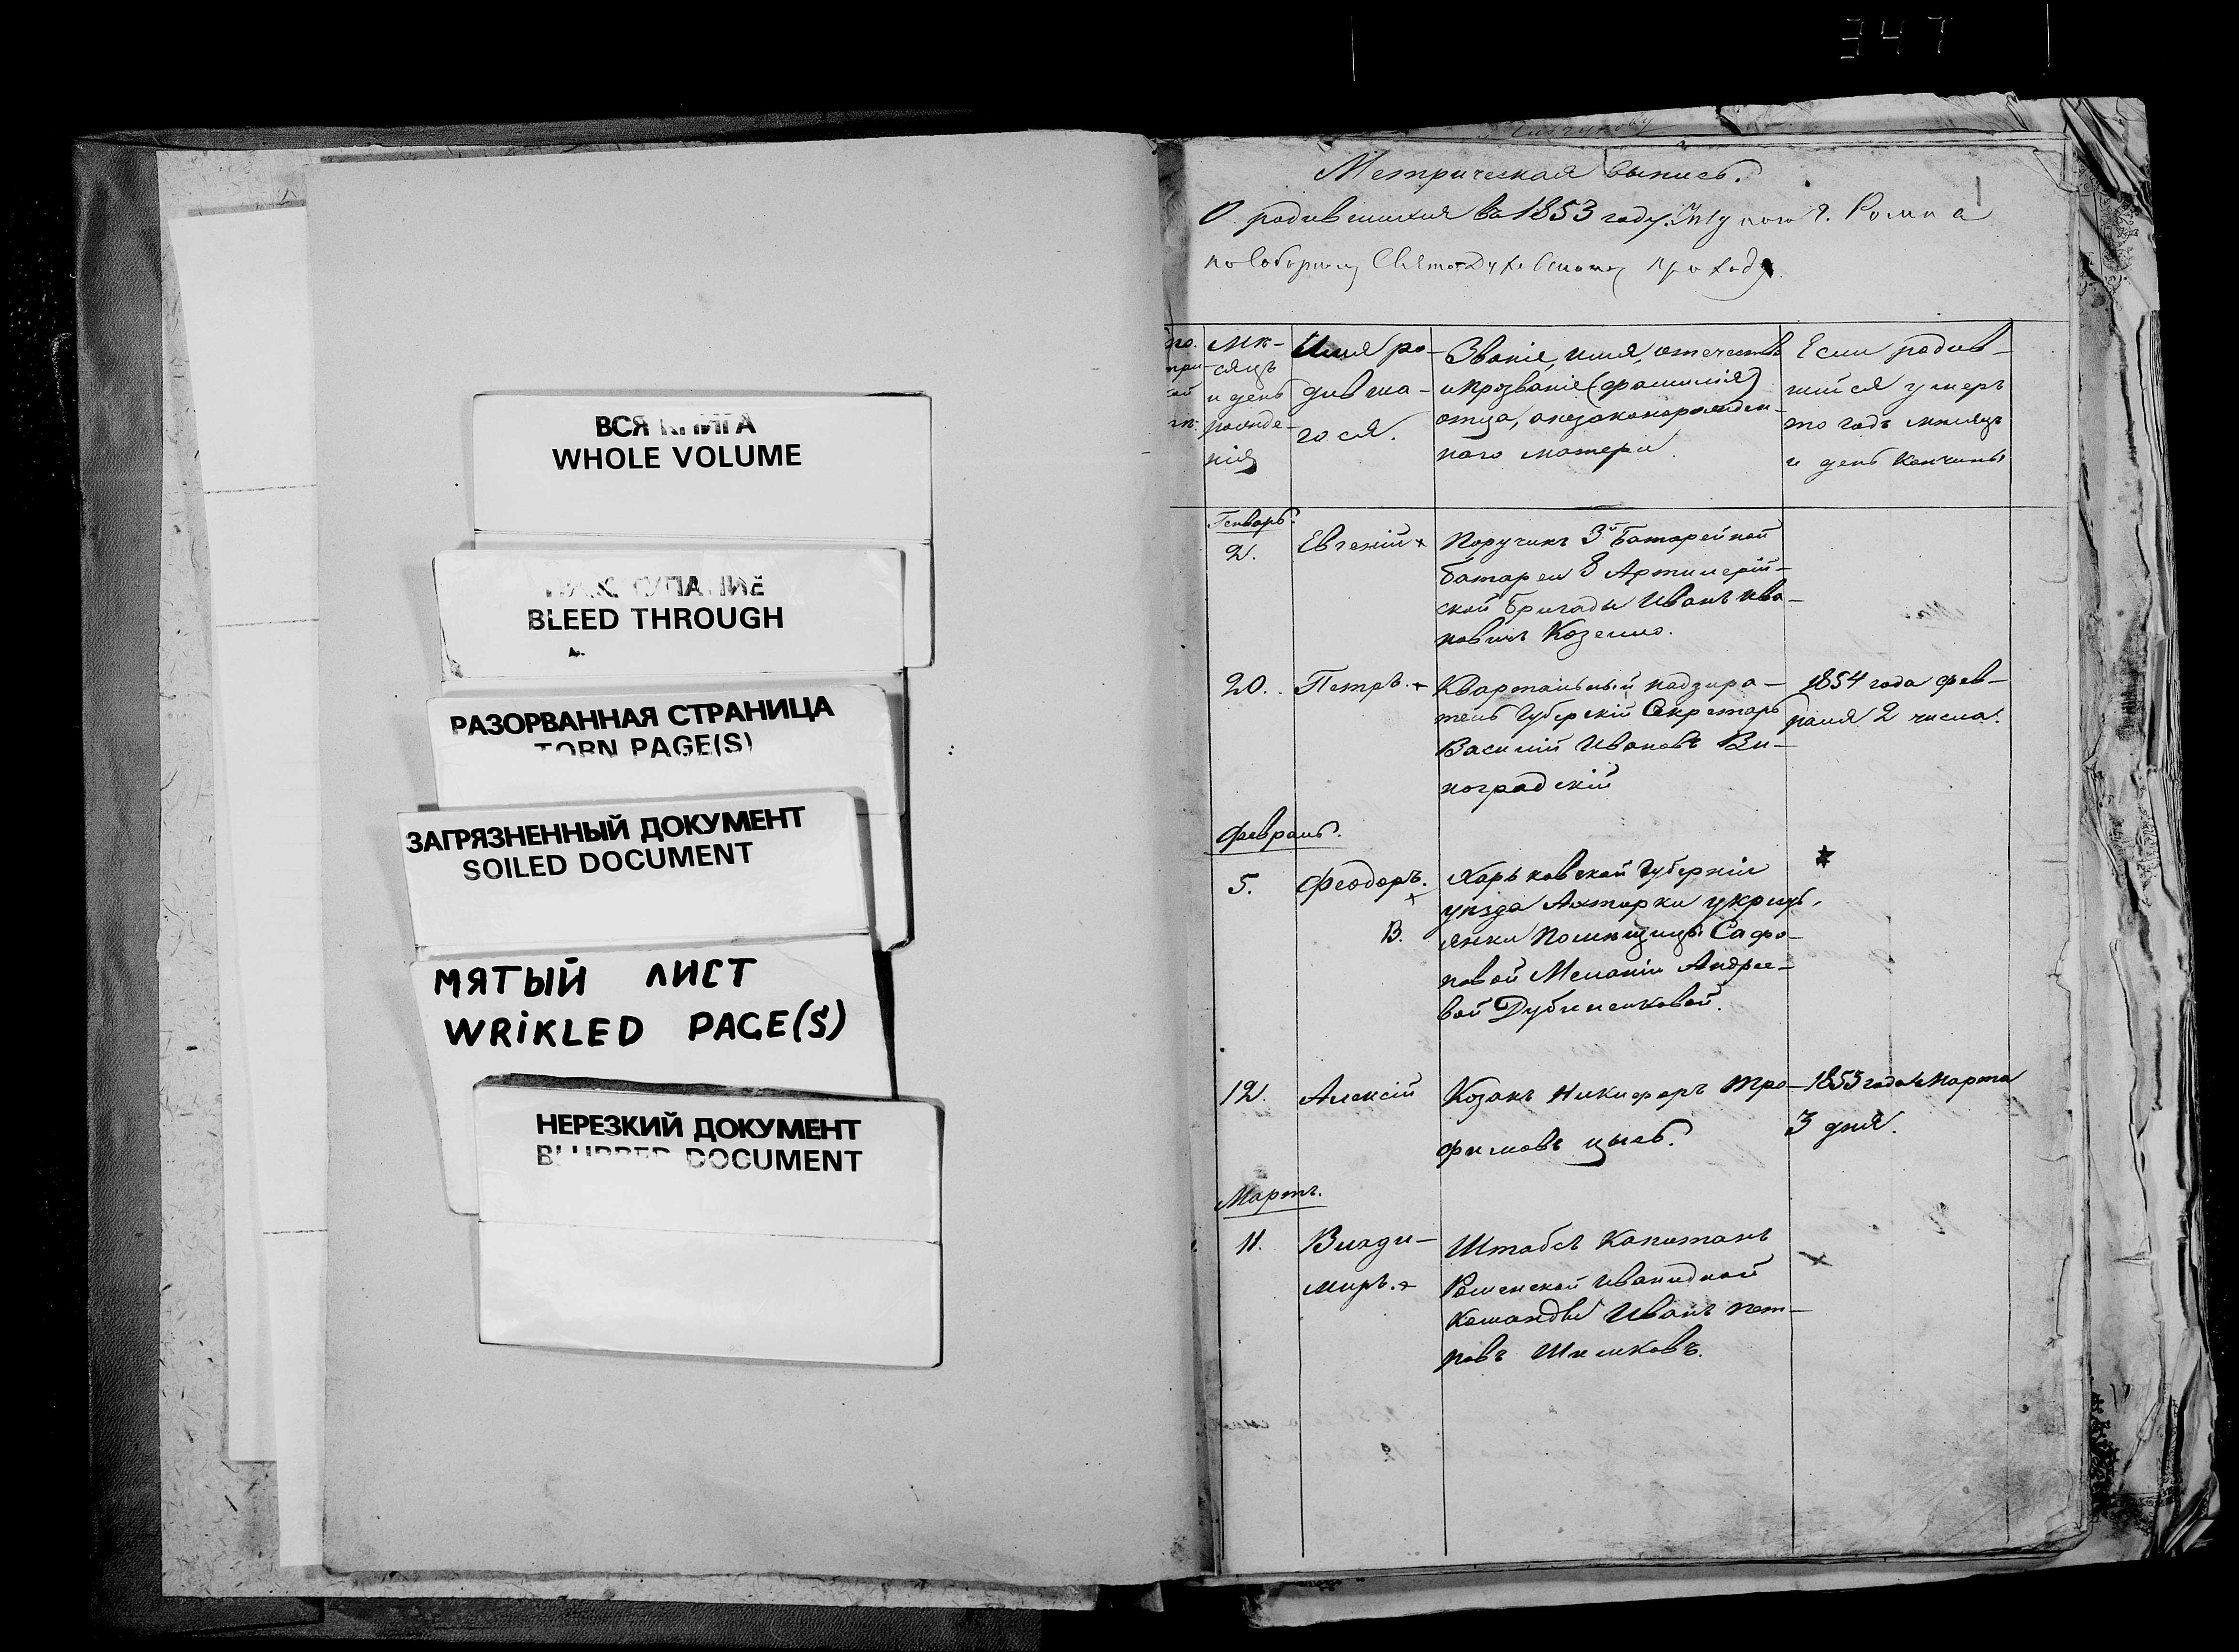 347
ВСЯ КНИГА
WHOLE VOLUME
BLEED THROUGH
РАЗОРВАННАЯ СТРАНИЦА
TORN PAGE(S)
ЗАГРЯЗНЕННЫЙ ДОКУМЕНТ
SOILED DOCUMENT
МЯТЫЙ ЛИСТ
WRIKLED PAGE(S)
НЕРЕЗКИЙ ДОКУМЕНТ
BLURRED DOCUMENT
Метрическая выпись.
О родившихся въ 1853 году. г. Ромна
по Соборному Свято Духовскому приходу.
Мѣ-
сяцъ
и день
рожде-
нія
Имя ро-
дивша-
гося.
Званіе, имя, отечество
и прозваніе (фамилія)
отца, а незаконорожден-
наго матери.
Если родив-
шийся умеръ
то годъ мѣсяцъ
и день кончины
Генварь.
2. Евгеній + Поручикъ 3й Батарейной
батареи 8 Артилерій-
ской бригады Иванъ Ива-
новичъ
20. Петръ. + Квартальный надзира- 1854 года фев-
тель Губерскій Секретарь раля 2 числа.
Василій Ивановъ Ви-
ноградскій
Февраль.
5. Феодоръ. + Харьковской Губерніи
уѣзда Ахтырки
В. янки Помѣщицы Сафо-
новой Меланіи Андрее-
вой Дубиненковой.
12. Алексій Козакъ Никифоръ Тро- 1853 года Марта
фимовъ Цыбъ. 3 дня.
Мартъ.
11. Влади- Штабсъ Капитанъ
миръ. + Роменской Инвалидной
Команды Иванъ Пет-
ровъ Шишковъ.